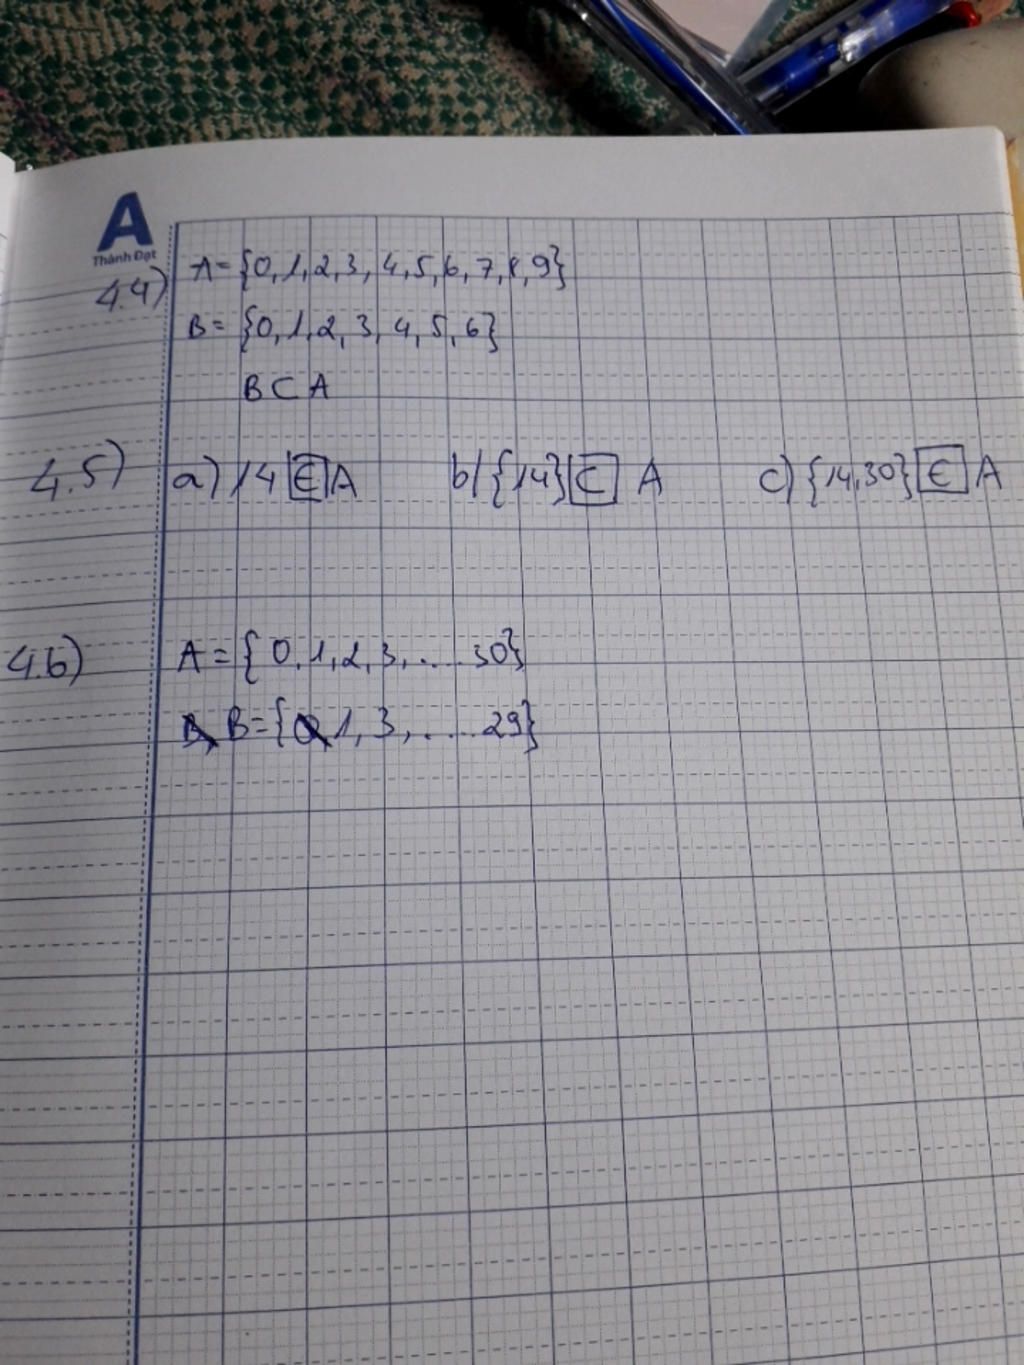 A
Thành Đạt
4.4) A={0,1,2,3,4,5,6,7,8,9}
B={0,1,2,3,4,5,6}
B⊂A
4.5) a) 14 ∈ A b) {14} ⊂ A c) {14,30} ∈ A
4.6) A={0,1,2,3,....30}
B={1,3,.....29}